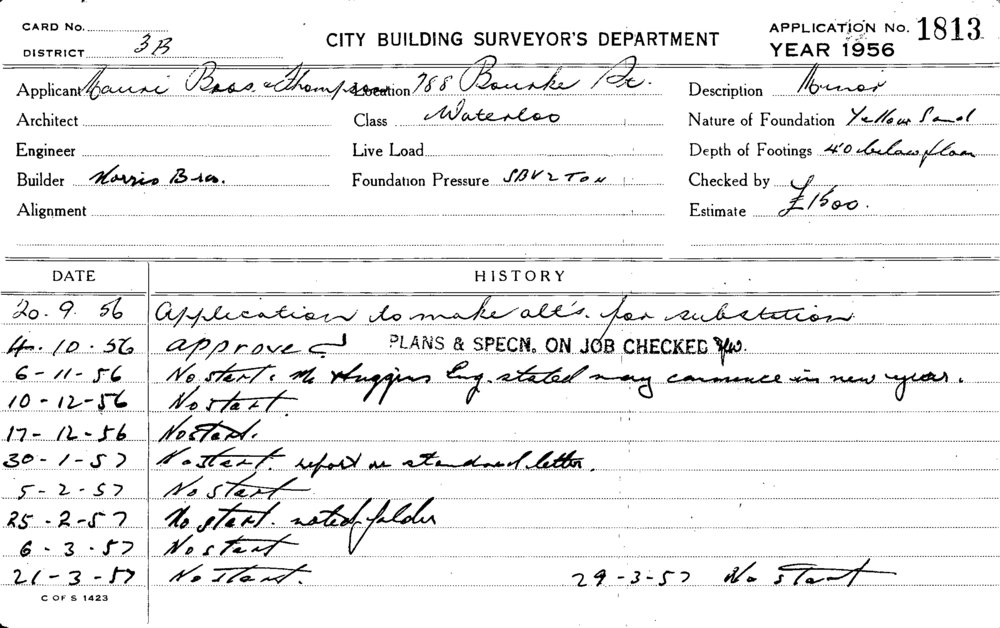 CARD No.
DISTRICT 3B
CITY BUILDING SURVEYOR'S DEPARTMENT
APPLICATION No. 1813
YEAR 1956
Applicant Mauri Bros. & Thompson Location 788 Bourke St. Description Minor
Architect Class Waterloo Nature of Foundation Yellow Sand
Engineer Live Load Depth of Footings 40 below floor
Builder Norris Bros. Foundation Pressure SBV 2 TON Checked by
Alignment Estimate £1500.
DATE HISTORY
20. 9. 56 Application to make alt's. for substation
4. 10. 56 approved PLANS & SPECN. ON JOB CHECKED
6-11-56 No start. Mr Huggins Eng. stated may commence in new year.
10-12-56 No start.
17-12-56 No start.
30-1-57 No start. report re standard letter.
5-2-57 No start
25-2-57 No start. noted folder
6-3-57 No start
21-3-57 No start. 29-3-57 No start
C OF S 1423